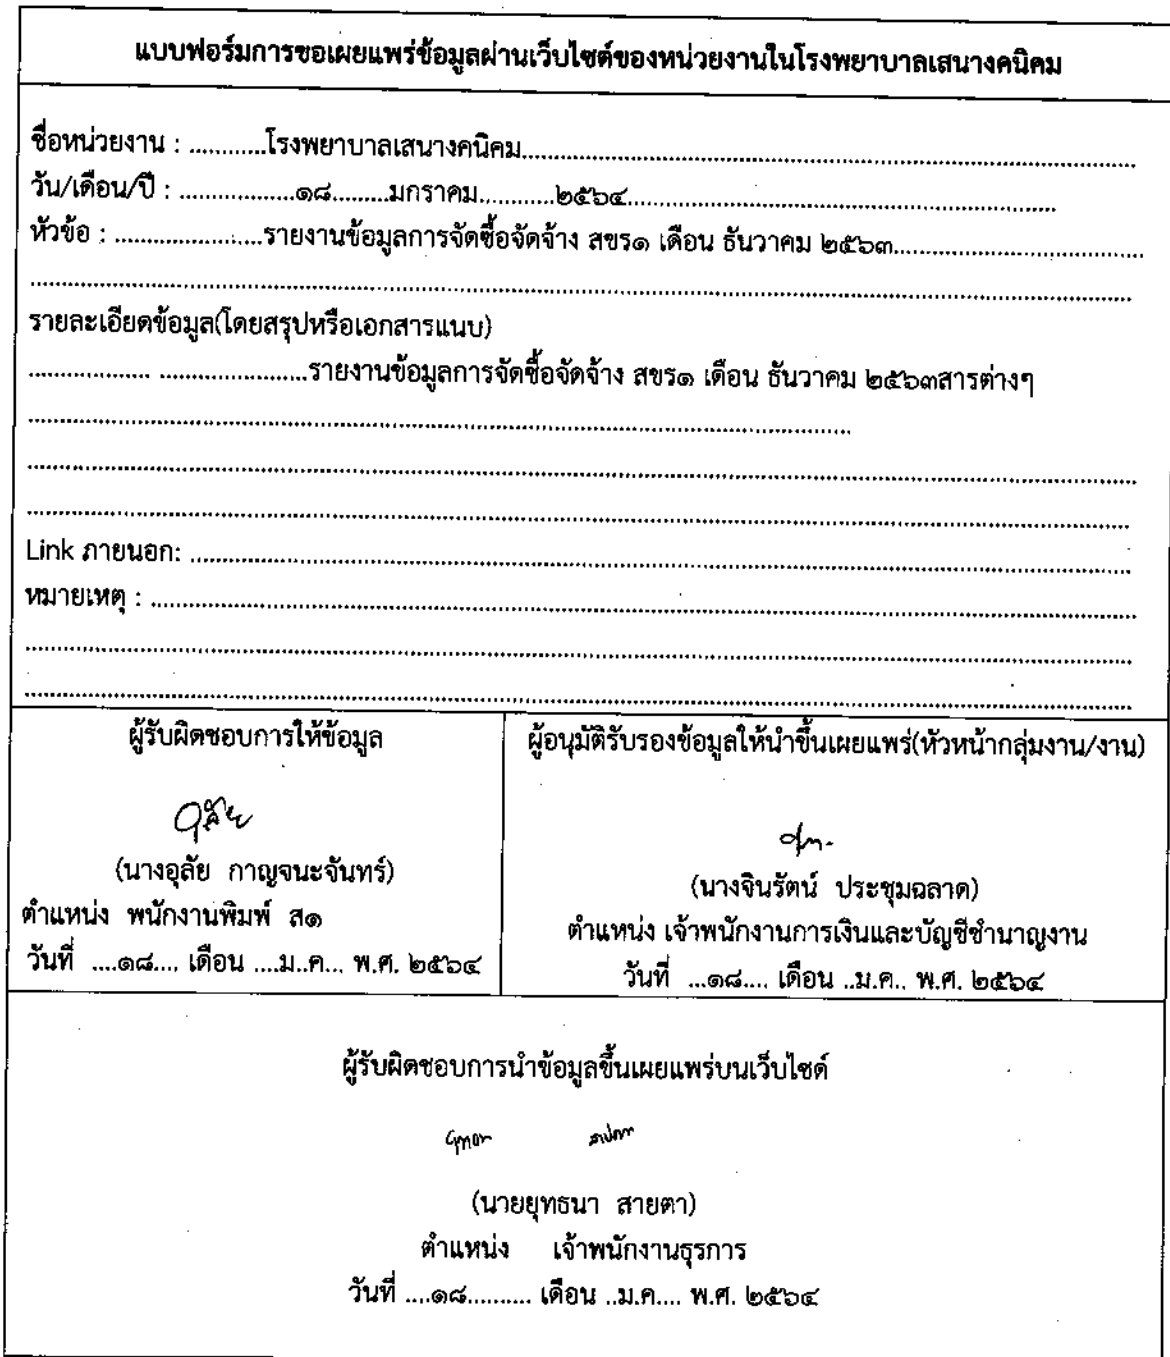 แบบฟอร์มการขอเผยแพร่ข้อมูลผ่านเว็บไซต์ของหน่วยงานในโรงพยาบาลเสนางคนิคม
ชื่อหน่วยงาน : ............โรงพยาบาลเสนางคนิคม......................................................................
วัน/เดือน/ปี : .................๑๘.........มกราคม............๒๕๖๔..................................................
หัวข้อ : .......................รายงานข้อมูลการจัดซื้อจัดจ้าง สขร๑ เดือน ธันวาคม ๒๕๖๓..............................
รายละเอียดข้อมูล(โดยสรุปหรือเอกสารแนบ)
................... .......................รายงานข้อมูลการจัดซื้อจัดจ้าง สขร๑ เดือน ธันวาคม ๒๕๖๓สารต่างๆ
Link ภายนอก: ..............................................................................
หมายเหตุ : ..............................................................................
ผู้รับผิดชอบการให้ข้อมูล
อุลัย
(นางอุลัย กาญจนะจันทร์)
ตำแหน่ง พนักงานพิมพ์ ส๑
วันที่ ....๑๘.... เดือน ....ม..ค... พ.ศ. ๒๕๖๔
ผู้อนุมัติรับรองข้อมูลให้นำขึ้นเผยแพร่(หัวหน้ากลุ่มงาน/งาน)
(นางจินรัตน์ ประชุมฉลาด)
ตำแหน่ง เจ้าพนักงานการเงินและบัญชีชำนาญงาน
วันที่ ...๑๘.... เดือน ..ม.ค.. พ.ศ. ๒๕๖๔
ผู้รับผิดชอบการนำข้อมูลขึ้นเผยแพร่บนเว็บไซต์
(นายยุทธนา สายตา)
ตำแหน่ง เจ้าพนักงานธุรการ
วันที่ ....๑๘.......... เดือน ..ม.ค.... พ.ศ. ๒๕๖๔